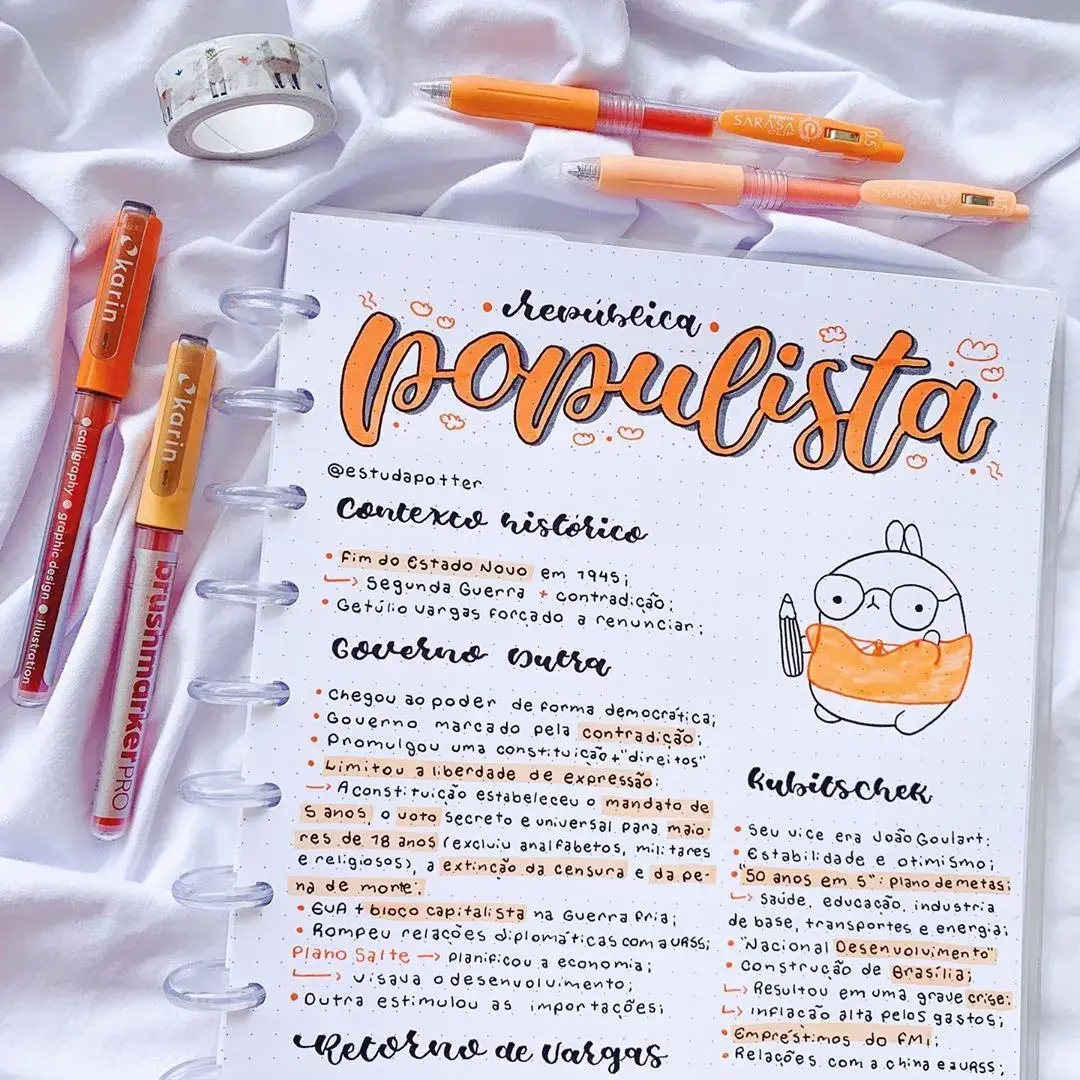 ZEBRA
SARASA
CLIP
0.5
SARASA
karin
calligraphy • graphic design • illustration
karin
brushmarkerPRO
república
populista
@estudapotter
Contexto histórico
• Fim do Estado Novo em 1945;
↳ Segunda Guerra + contradição;
• Getúlio Vargas forçado a renunciar;
Governo Dutra
• Chegou ao poder de forma democrática;
• Governo marcado pela contradição;
• Promulgou uma constituição + "direitos"
• Limitou a liberdade de expressão;
→ A constituição estabeleceu o mandato de
5 anos, o voto secreto e universal para maio-
res de 18 anos (excluiu analfabetos, militares
e religiosos), a extinção da censura e da pe-
na de morte;
• EUA + bloco capitalista na Guerra Fria;
• Rompeu relações diplomáticas com a URSS;
Plano Salte → planificou a economia;
↳ visava o desenvolvimento;
• Dutra estimulou as importações;
Retorno de Vargas
Kubitschek
• Seu vice era João Goulart:
• Estabilidade e otimismo;
• "50 anos em 5": plano de metas;
↳ Saúde, educação, industria
de base, transportes e energia;
• "Nacional Desenvolvimento"
• Construção de Brasília;
↳ Resultou em uma grave crise:
↳ Inflacão alta pelos gastos;
• Empréstimos do FMI;
• Relações com a china e a URSS;